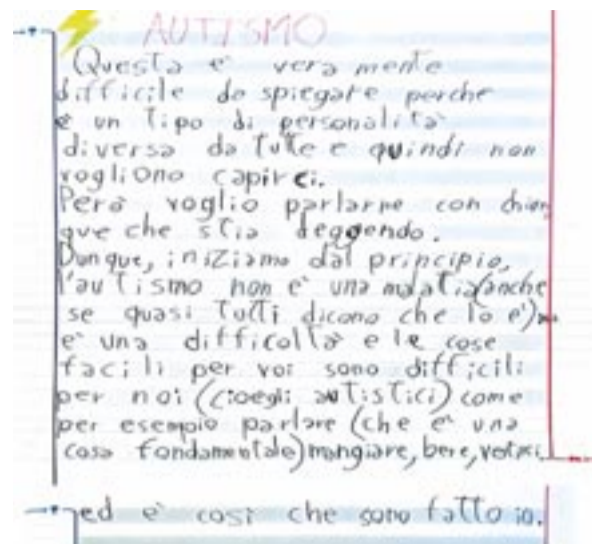 AUTISMO
Questa e' vera mente
difficile da spiegare perche
è un tipo di personalita'
diversa da tutte e quindi non
vogliono capirci.
Però voglio parlarne con chiun
que che stia leggendo.
Dunque, iniziamo dal principio,
l'autismo non e' una malatia(anche
se quasi tutti dicono che lo e')
e' una difficoltà e le cose
facili per voi sono difficili
per noi (cioegli autistici) come
per esempio parlare (che e' una
cosa fondamentale) mangiare, bere,
ed e' così che sono fatto io.